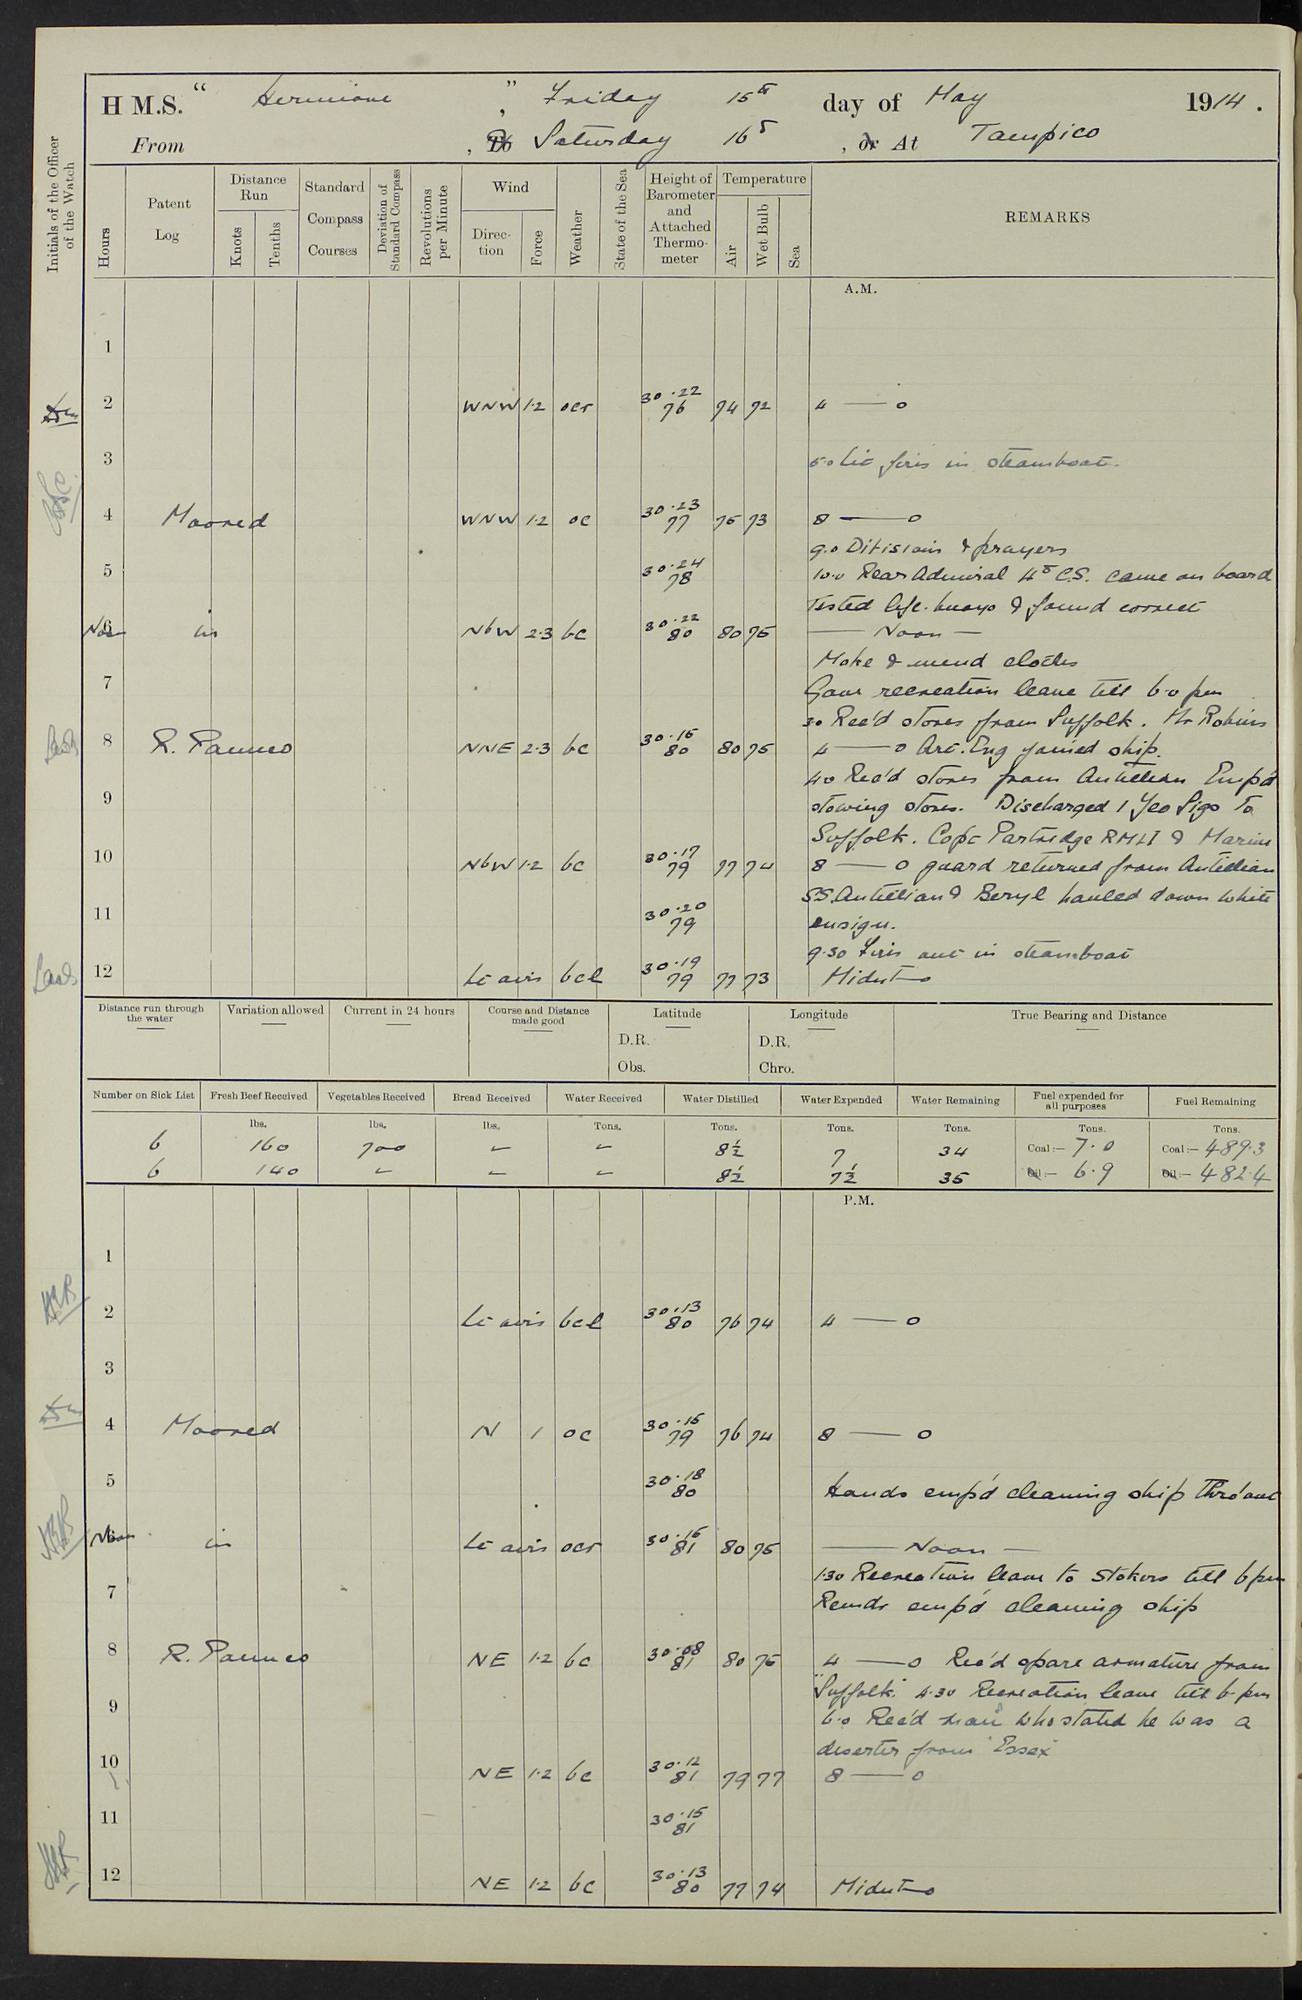 H M.S. " Hermione ", Friday 15th day of May 1914.
From , To Saturday 16th , or At Tampico
Initials of the Officer of the Watch
Hours
Patent Log
Distance Run
Knots
Tenths
Standard Compass Courses
Deviation of Standard Compass
Revolutions per Minute
Wind
Direction
Force
Weather
State of the Sea
Height of Barometer and Attached Thermometer
Temperature
Air
Wet Bulb
Sea
REMARKS
A.M.
1
2 WNW 1·2 ocr 30·22 76 74 72 4 — 0
3 5·0 Lit fires in steamboat.
4 Moored WNW 1·2 oc 30·23 77 75 73 8 — 0
9.0 Divisions & prayers
5 30·24 78 10·0 Rear Admiral 4th C.S. came on board
Tested life-buoys & found correct
6 Noon in NbW 2·3 bc 30·22 80 80 75 — Noon —
Make & mend clothes
7 Gave recreation leave till 6·0 pm
30 Rec'd stores from Suffolk. Mr Robins
8 R. Panuco NNE 2·3 bc 30·15 80 80 75 4 — 0 Art. Eng joined ship.
40 Rec'd stores from Antillian Emp'd
9 stowing stores. Discharged 1 Yeo Sigs to
Suffolk. Capt Partridge RMLI & Marine
10 NbW 1·2 bc 30·17 79 77 74 8 — 0 guard returned from Antillian
S.S. Antillian & Beryl hauled down white
11 30·20 79 ensign.
9·30 Fires out in steamboat
12 Lt airs bcl 30·19 79 77 73 Midnt
Distance run through the water
Variation allowed
Current in 24 hours
Course and Distance made good
Latitude
D.R.
Obs.
Longitude
D.R.
Chro.
True Bearing and Distance
Number on Sick List Fresh Beef Received Vegetables Received Bread Received Water Received Water Distilled Water Expended Water Remaining Fuel expended for all purposes Fuel Remaining
lbs. lbs. lbs. Tons. Tons. Tons. Tons. Tons. Tons.
6 160 700 – – 8½ 7 34 Coal:– 7·0 Coal:– 489·3
6 140 – – – 8½ 7½ 35 Oil:– 6·9 Oil:– 482·4
P.M.
1
2 Lt airs bcl 30·13 80 76 74 4 — 0
3
4 Moored N 1 oc 30·15 79 76 74 8 — 0
5 30·18 80 Hands emp'd cleaning ship thro'out
6 Noon in Lt airs ocr 30·16 81 80 75 — Noon —
1·30 Recreation leave to Stokers till 6 pm
7 Remdr emp'd cleaning ship
8 R. Panuco NE 1·2 bc 30·08 81 80 75 4 — 0 Rec'd spare armature from
"Suffolk" 4·30 Recreation leave till 6 pm
9 6·0 Rec'd man who stated he was a
deserter from "Essex"
10 NE 1·2 bc 30·12 81 79 77 8 — 0
11 30·15 81
12 NE 1·2 bc 30·13 80 77 74 Midnt